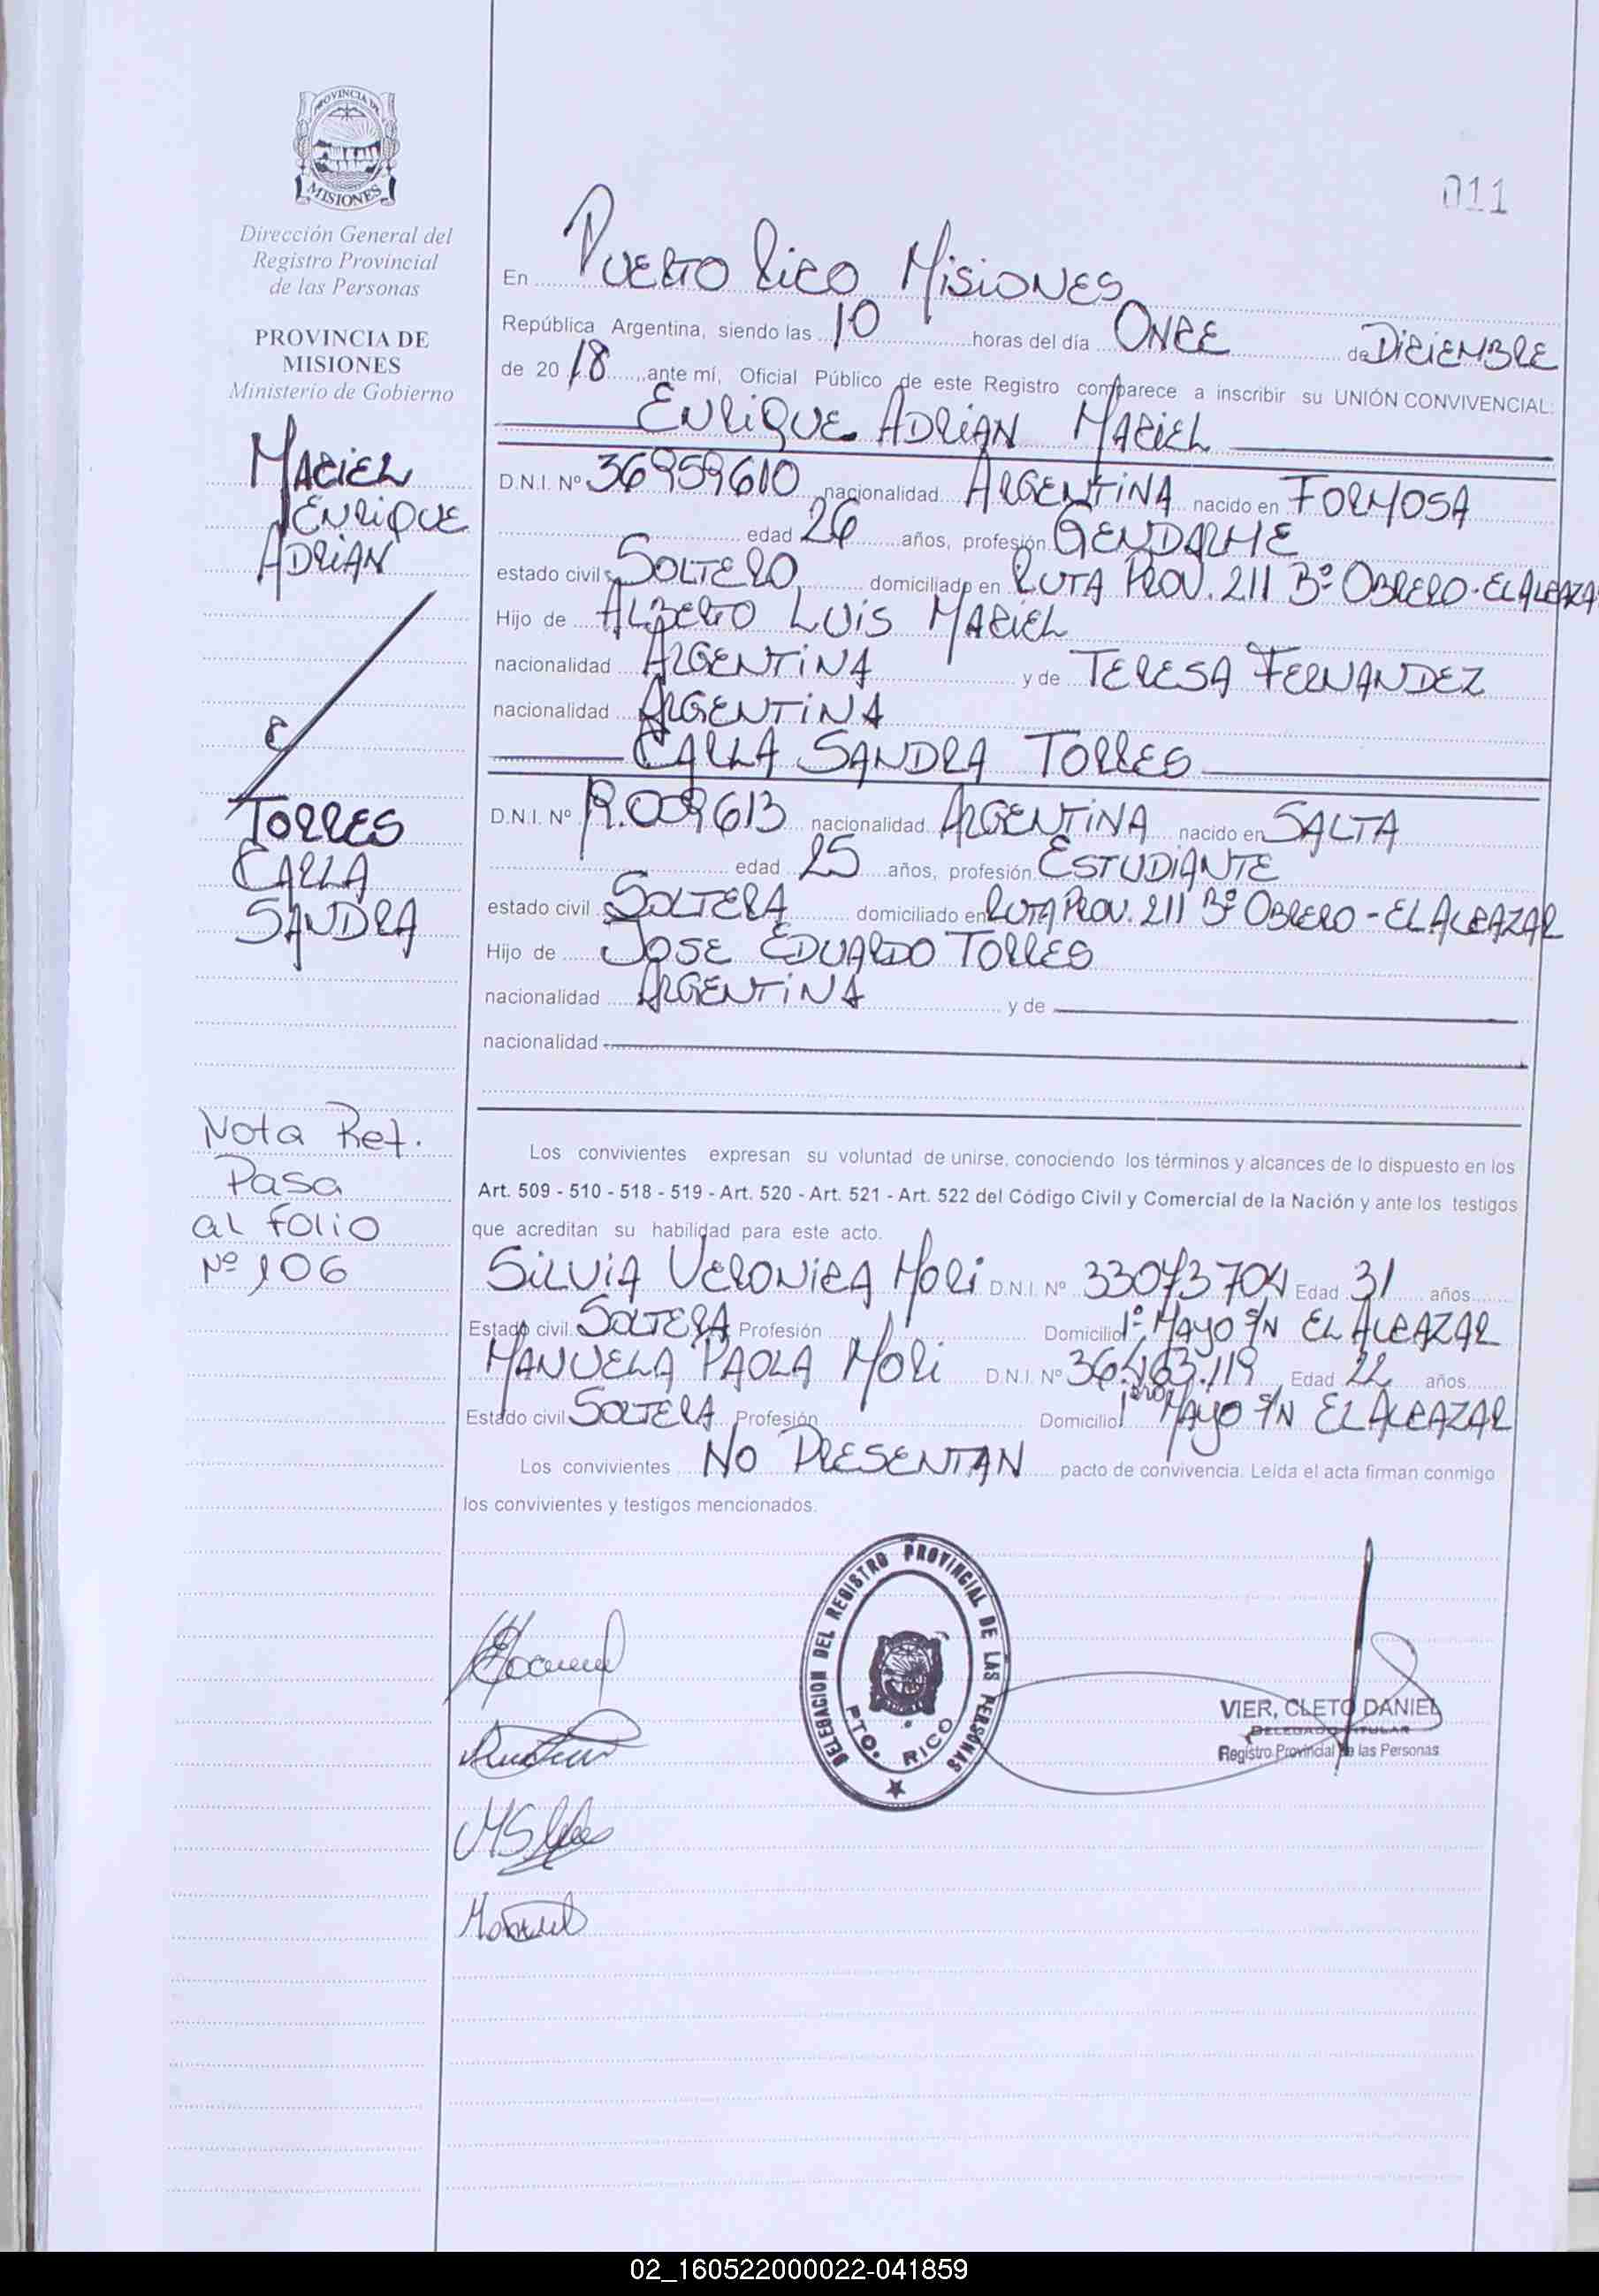 011
PROVINCIA DE
MISIONES
Dirección General del
Registro Provincial
de las Personas
PROVINCIA DE
MISIONES
Ministerio de Gobierno
MACIEL
ENRIQUE
ADRIAN
C
TORRES
CARLA
SANDRA
Nota Ref.
Pasa
al folio
Nº 106
En PUERTO RICO MISIONES
República Argentina, siendo las 10 horas del día ONCE de DICIEMBRE
de 2018, ante mí, Oficial Público de este Registro comparece a inscribir su UNIÓN CONVIVENCIAL:
ENRIQUE ADRIAN MACIEL
D.N.I. Nº 36959610 nacionalidad ARGENTINA nacido en FORMOSA
edad 26 años, profesión GENDARME
estado civil SOLTERO domiciliado en RUTA PROV. 211 Bº OBRERO - EL ALCAZA
Hijo de ALBERTO LUIS MACIEL
nacionalidad ARGENTINA y de TERESA FERNANDEZ
nacionalidad ARGENTINA
CARLA SANDRA TORRES
D.N.I. Nº nacionalidad ARGENTINA nacido en SALTA
edad 25 años, profesión ESTUDIANTE
estado civil SOLTERA domiciliado en RUTA PROV. 211 Bº OBRERO - EL ALCAZAR
Hijo de JOSE EDUARDO TORRES
nacionalidad ARGENTINA y de
nacionalidad
Los convivientes expresan su voluntad de unirse, conociendo los términos y alcances de lo dispuesto en los
Art. 509 - 510 - 518 - 519 - Art. 520 - Art. 521 - Art. 522 del Código Civil y Comercial de la Nación y ante los testigos
que acreditan su habilidad para este acto.
SILVIA VERONICA MORI D.N.I. Nº 33073704 Edad 31 años
Estado civil SOLTERA Profesión Domicilio 1º MAYO S/N EL ALCAZAR
MANUELA PAOLA MORI D.N.I. Nº 36.463.119 Edad 22 años
Estado civil SOLTERA Profesión Domicilio 1ero MAYO S/N EL ALCAZAR
Los convivientes NO PRESENTAN pacto de convivencia. Leída el acta firman conmigo
los convivientes y testigos mencionados.
DELEGACION DEL REGISTRO PROVINCIAL DE LAS PERSONAS
PTO. RICO
VIER, CLETO DANIEL
DELEGADO TITULAR
Registro Provincial de las Personas
02_160522000022-041859